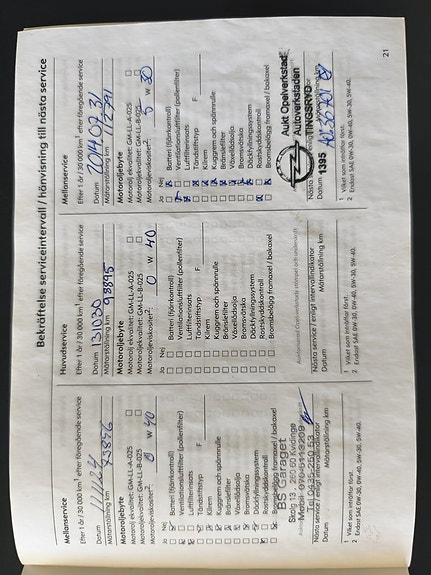 Bekräftelse serviceintervall / hänvisning till nästa service
Mellanservice
Efter 1 år / 30 000 km¹ efter föregående service
Datum
Mätarställning km 73856
Motoroljebyte
Motorolj ekvalitet: GM-LL-A-025
Motoroljekvalitet: GM-LL-B-025
Motoroljeviskositet²: 0 W 40
Ja Nej
Batteri (fjärrkontroll)
Ventilationsluftfilter (pollenfilter)
Luftfilterinsats
Tändstiftstyp F
Kilrem
Kuggrem och spännrulle
Bränslefilter
Växellådsolja
Bromsvätska
Däckfyllningssystem
Rostskyddskontroll
Bromsbelägg framaxel / bakaxel
BS Garaget
Nästa service / enligt intervallindikator
Datum Mätarställning km
1 Vilket som inträffar först.
2 Endast SAE 0W-30, 0W-40, 5W-30, 5W-40.
Huvudservice
Efter 1 år / 30 000 km¹ efter föregående service
Datum 131030
Mätarställning km 98895
Motoroljebyte
Motorolj ekvalitet: GM-LL-A-025
Motoroljekvalitet: GM-LL-B-025
Motoroljeviskositet²: 0 W 40
Ja Nej
Batteri (fjärrkontroll)
Ventilationsluftfilter (pollenfilter)
Luftfilterinsats
Tändstiftstyp F
Kilrem
Kuggrem och spännrulle
Bränslefilter
Växellådsolja
Bromsvätska
Däckfyllningssystem
Rostskyddskontroll
Bromsbelägg framaxel / bakaxel
Nästa service / enligt intervallindikator
Datum Mätarställning km
1 Vilket som inträffar först.
2 Endast SAE 0W-30, 0W-40, 5W-30, 5W-40.
Mellanservice
Efter 1 år / 30 000 km¹ efter föregående service
Datum 2014 07 31
Mätarställning km 112791
Motoroljebyte
Motorolj ekvalitet: GM-LL-A-025
Motoroljekvalitet: GM-LL-B-025
Motoroljeviskositet²: 5 W 30
Ja Nej
Batteri (fjärrkontroll)
Ventilationsluftfilter (pollenfilter)
Luftfilterinsats
Tändstiftstyp F
Kilrem
Kuggrem och spännrulle
Bränslefilter
Växellådsolja
Bromsvätska
Däckfyllningssystem
Rostskyddskontroll
Bromsbelägg framaxel / bakaxel
Aukt Opelverkstad
Autoverkstaden
TINGSRYD
Nästa service
Datum 1395
1 Vilket som inträffar först.
2 Endast SAE 0W-30, 0W-40, 5W-30, 5W-40.
21